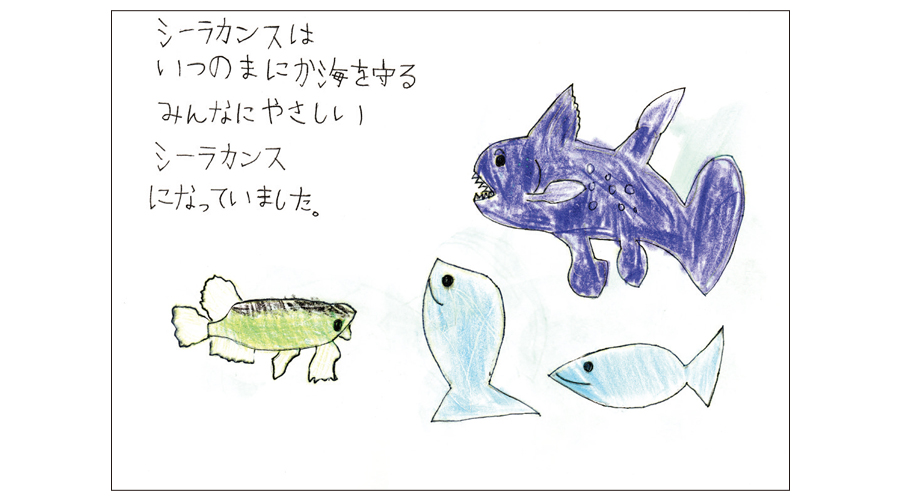 シーラカンスは
いつのまにか海を守る
みんなにやさしい
シーラカンス
になっていました。